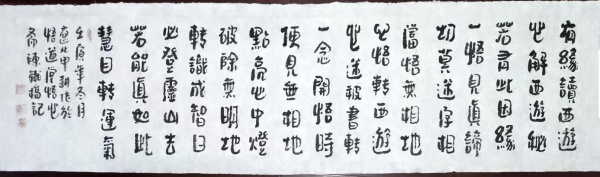 有緣讀西遊
心解西遊秘
若有此因緣
一悟見真諦
切莫迷字相
當悟無相地
心悟轉西遊
心迷被書轉
一念開悟時
便見無相地
點亮心中燈
破除無明地
轉識成智日
必登靈山去
若能真如此
慧目轉運氣
壬寅年冬月